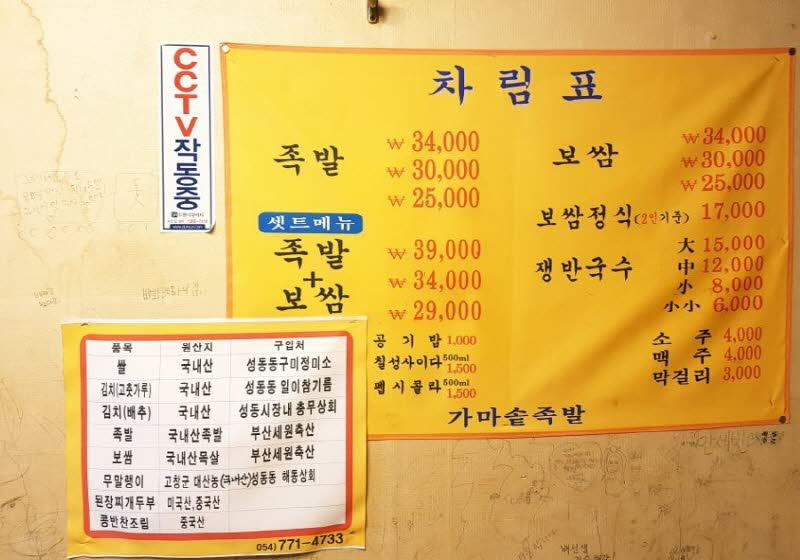 CCTV작동중
차림표
족발 ₩ 34,000
₩ 30,000
₩ 25,000
셋트메뉴
족발+보쌈 ₩ 39,000
₩ 34,000
₩ 29,000
공기밥 1,000
칠성사이다 500ml 1,500
펩시콜라 500ml 1,500
보쌈 ₩ 34,000
₩ 30,000
₩ 25,000
보쌈정식(2인기준) 17,000
쟁반국수 大 15,000
中 12,000
小 8,000
小小 6,000
소주 4,000
맥주 4,000
막걸리 3,000
가마솥족발
품목 원산지 구입처
쌀 국내산 성동동구미정미소
김치(고춧가루) 국내산 성동동 일이참기름
김치(배추) 국내산 성동시장내 충무상회
족발 국내산족발 부산세원축산
보쌈 국내산목살 부산세원축산
무말랭이 고창군 대산농(국내산)성동동 해동상회
된장찌개두부 미국산,중국산
콩반찬조림 중국산
054) 771-4733